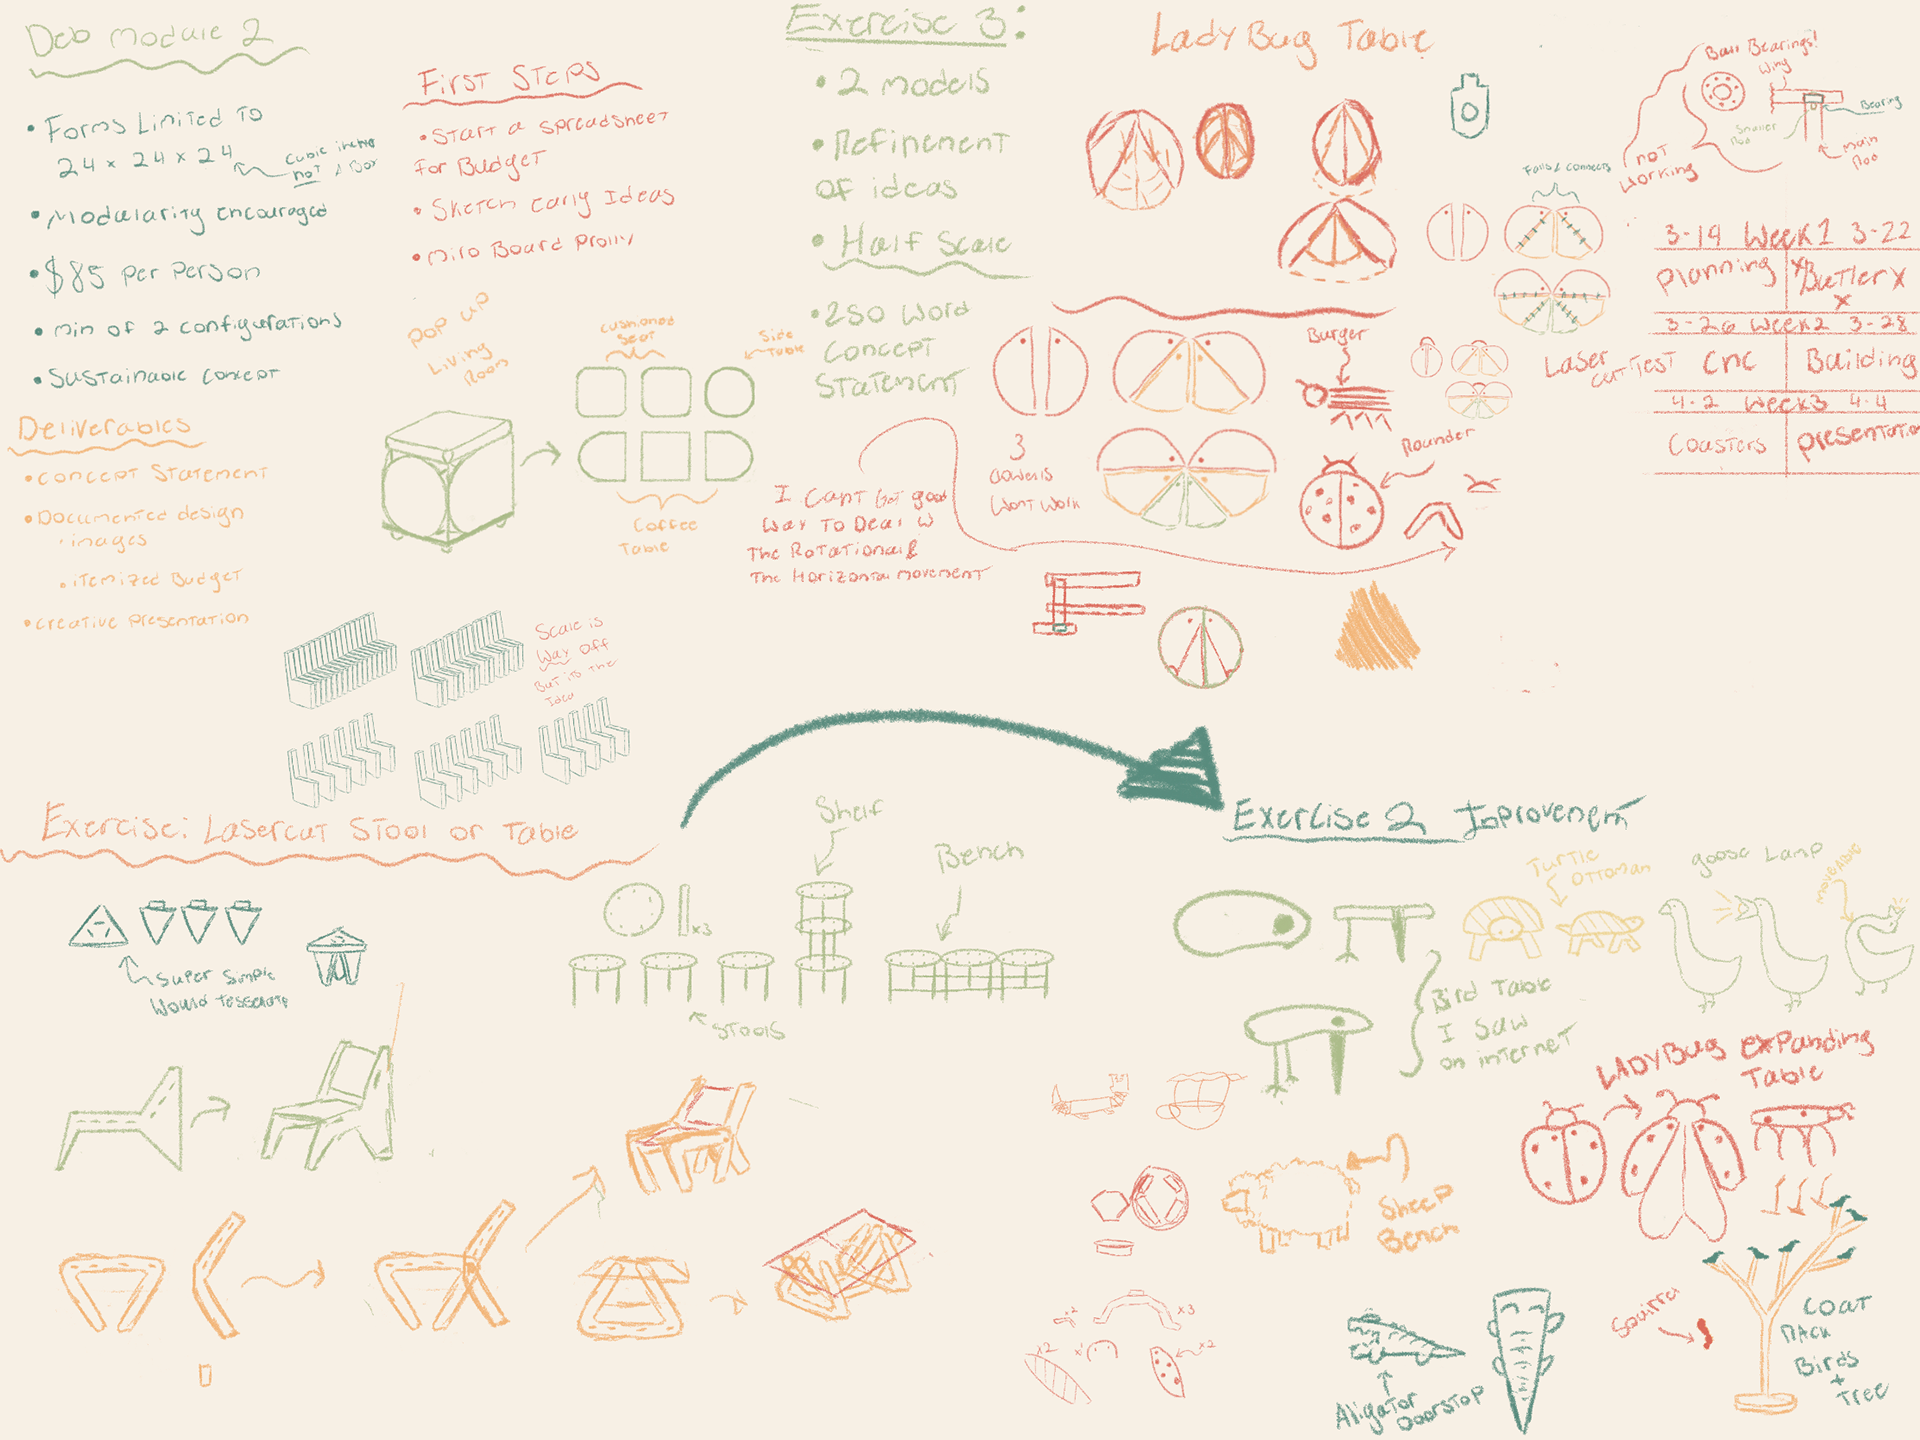 Deb module 2
• Forms Limited to
24 x 24 x 24
not a Box
• Modularity encouraged
• $85 per person
• min of 2 configurations
• Sustainable concept
Deliverables
• concept Statement
• Documented design
• images
• itemized Budget
• creative presentation
First Steps
• Start a spreadsheet
For Budget
• Sketch early Ideas
• miro Board prolly
pop up
Living
Room
cushioned
Seat
Side
Table
Coffee
Table
Scale is
Way off
But its the
Idea
Exercise 3:
• 2 models
• Refinement
of ideas
• Half Scale
• 250 Word
Concept
Statement
I Cant Get good
Way To Deal W
The Rotational &
The Horizontal movement
LadyBug Table
3
Dowels
Wont Work
Burger
Rounder
Ball Bearings!
Wing
Bearing
Smaller
Rod
main
Rod
not
Working
3-19 Week1 3-22
planning x Butler x
x
3-26 Week2 3-28
Laser
cut Test
CNC Building
4-2 Week3 4-4
Coasters
Exercise: Lasercut Stool or Table
Super Simple
Would Tesselate
x3
Shelf
Bench
Stools
Exercise 2 Improvement
Turtle
Ottoman
goose Lamp
moveable
Bird Table
I Saw
on internet
LADYBug expanding
Table
Sheep
Bench
x2
x3
x2
x2
Aligator
Doorstop
Coat
Rack
Birds
+
Tree